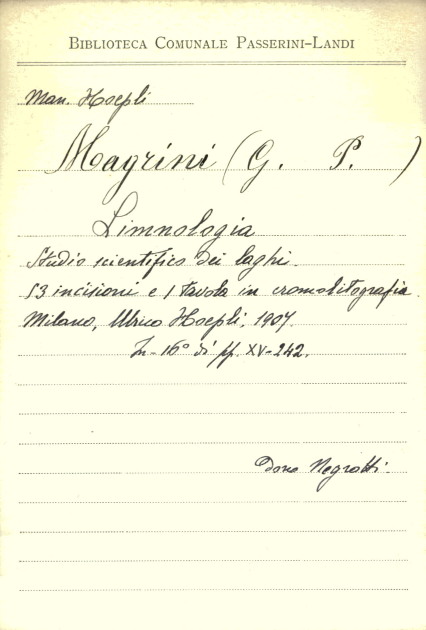 BIBLIOTECA COMUNALE PASSERINI-LANDI
Man. Hoepli
Magrini (G. P. )
Limnologia
Studio scientifico dei laghi.
53 incisioni e 1 tavola in cromolitografia.
Milano, Ulrico Hoepli, 1907.
In-16° di pp. XV-242.
Dono Negrotti.